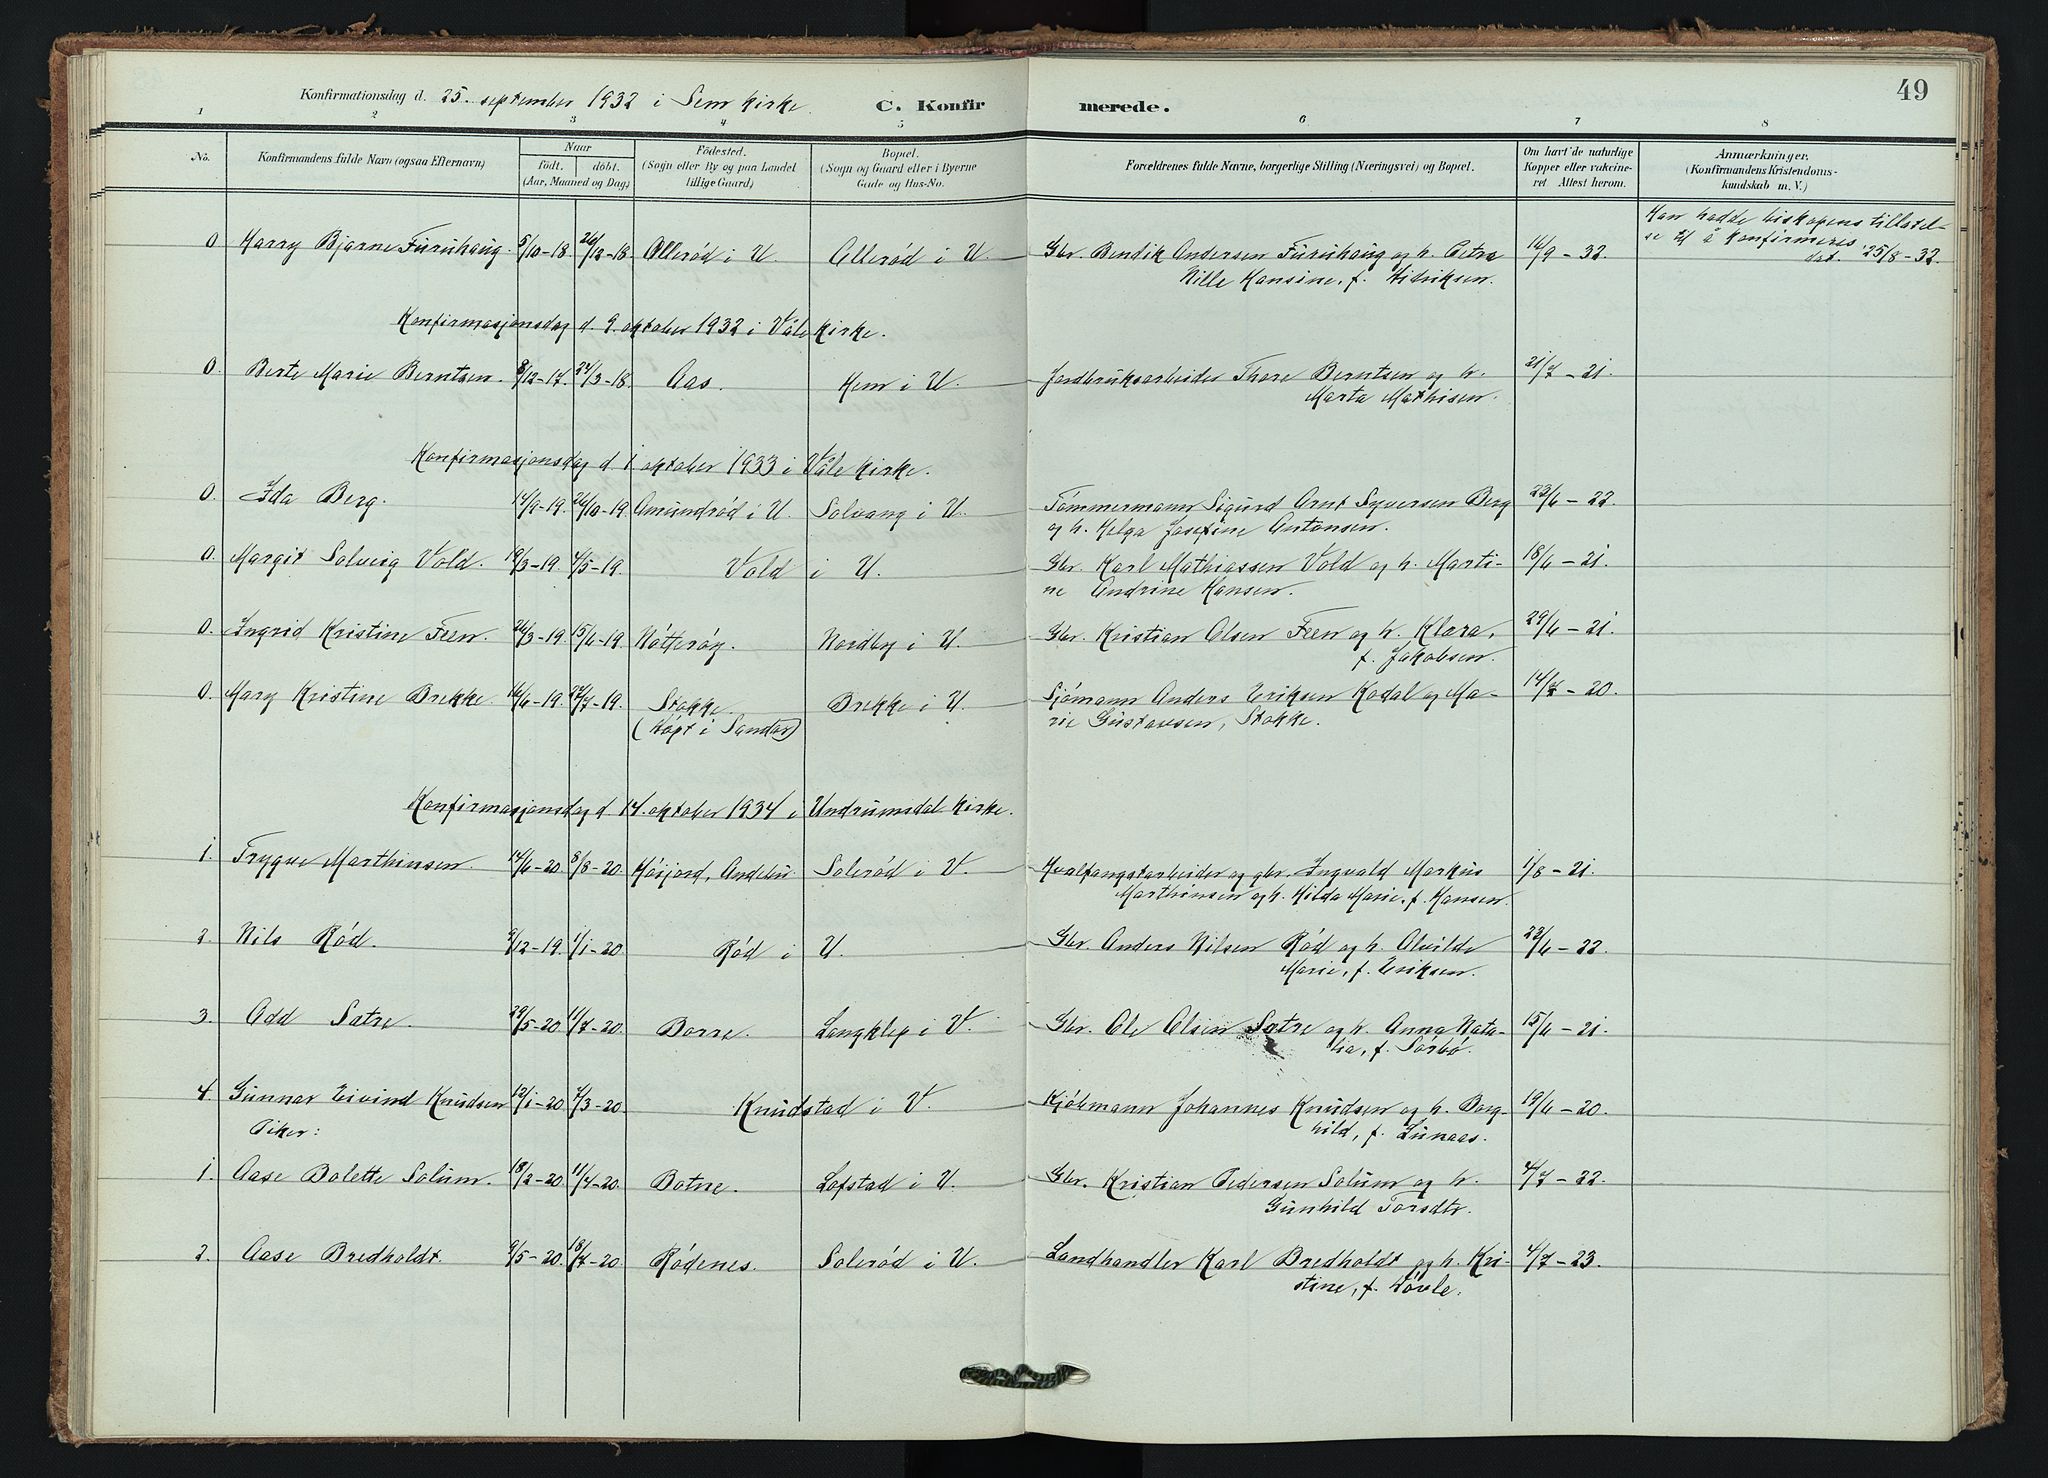 49
Konfirmationsdag d. 25. september 1932 i Sem kirke. C. Konfirmerede.
1 2 3 4 5 6 7 8
No. Konfirmandens fulde Navn (ogsaa Efternavn) Naar födt. döbt. (Aar, Maaned og Dag) Födested. (Sogn eller By og paa Landet tillige Gaard) Bopæl. (Sogn og Gaard eller i Byerne Gade og Hus-No. Forældrenes fulde Navne, borgerlige Stilling (Næringsvei) og Bopæl. Om havt de naturlige Kopper eller vakcineret Attest herom. Anmærkninger. (Konfirmandens Kristendomskundskab m. V.)
0 Harry Bjarne Furuhaug. 5/10-18. 26/12-18. Ollerød i U. Ollerød i U. Gbr. Bendik Andersen Furuhaug og h. Petra 16/9 - 32. Han hadde biskopens tillatel-
Nille Hansine, f. Didriksen. se til å konfirmeres
dat. 25/8 - 32.
Konfirmasjonsdag d. 9. oktober 1932 i Våle kirke.
0. Berte Marie Berntsen. 8/12-17. 24/3-18. Aas. Hem i U. Jordbruksarbeider Thore Berntsen og h. 21/7 - 21.
Marta Mathisen.
Konfirmasjonsdag d. 1. oktober 1933 i Våle kirke.
0. Ida Berg. 14/9-19. 26/10-19. Amundrød i U. Solvang i U. Tømmermann Sigurd Arnt Syversen Berg 23/6 - 22.
og h. Helga Josefine Antonsen.
0. Margit Solveig Vold. 19/3-19. 4/5-19. Vold i U. Gbr. Karl Mathiassen Vold og h. Marti- 18/6 - 21.
ne Andrine Hansen.
0. Ingrid Kristine Feen. 26/3-19. 15/6-19. Nøtterøy. Nordby i U. Gbr. Kristian Olsen Feen og h. Klara, 29/6 - 21.
f. Jakobsen.
0. Mary Kristine Brekke. 16/6-19. 27/7-19. Stokke. Brekke i U. Sjømann Anders Eriksen Kodal og Ma- 14/7 - 20.
(døpt i Sandar) rie Gustavsen, Stokke.
Konfirmasjonsdag d. 14. oktober 1934 i Undrumsdal kirke.
1. Trygve Marthinsen. 14/6-20. 8/8-20. Høijord, Andebu. Solerød i V. Hvalfangstarbeider og gbr. Ingvald Markus 1/8 - 21.
Marthinsen og h. Hilda Marie, f. Hansen.
2. Nils Rød. 9/12-19. 1/1-20. Rød i U. Gbr. Anders Nilsen Rød og h. Alvilde 22/6 - 22.
Marie, f. Eriksen.
3. Odd Sætre. 29/5-20. 11/7-20. Borre. Langklep i V. Gbr. Ole Olsen Sætre og h. Anna Nata- 15/6 - 21.
lia, f. Sørbø.
4. Gunnar Eivind Knudsen 12/1-20. 7/3-20. Knudstad i V. Kjøbmann Johannes Knudsen og h. Borg- 19/6 - 20.
Piker: hild, f. Lunaas.
1. Aase Bolette Solum. 18/2-20. 11/4-20. Botne. Lofstad i U. Gbr. Kristian Pedersen Solum og h. 4/7 - 22.
Gunhild Torsdtr.
2. Aase Bredholdt. 9/5-20. 18/7-20. Rødenes. Solerød i U. Landhandler Karl Bredholdt og h. Kri- 4/7 - 23.
stine, f. Løvle.